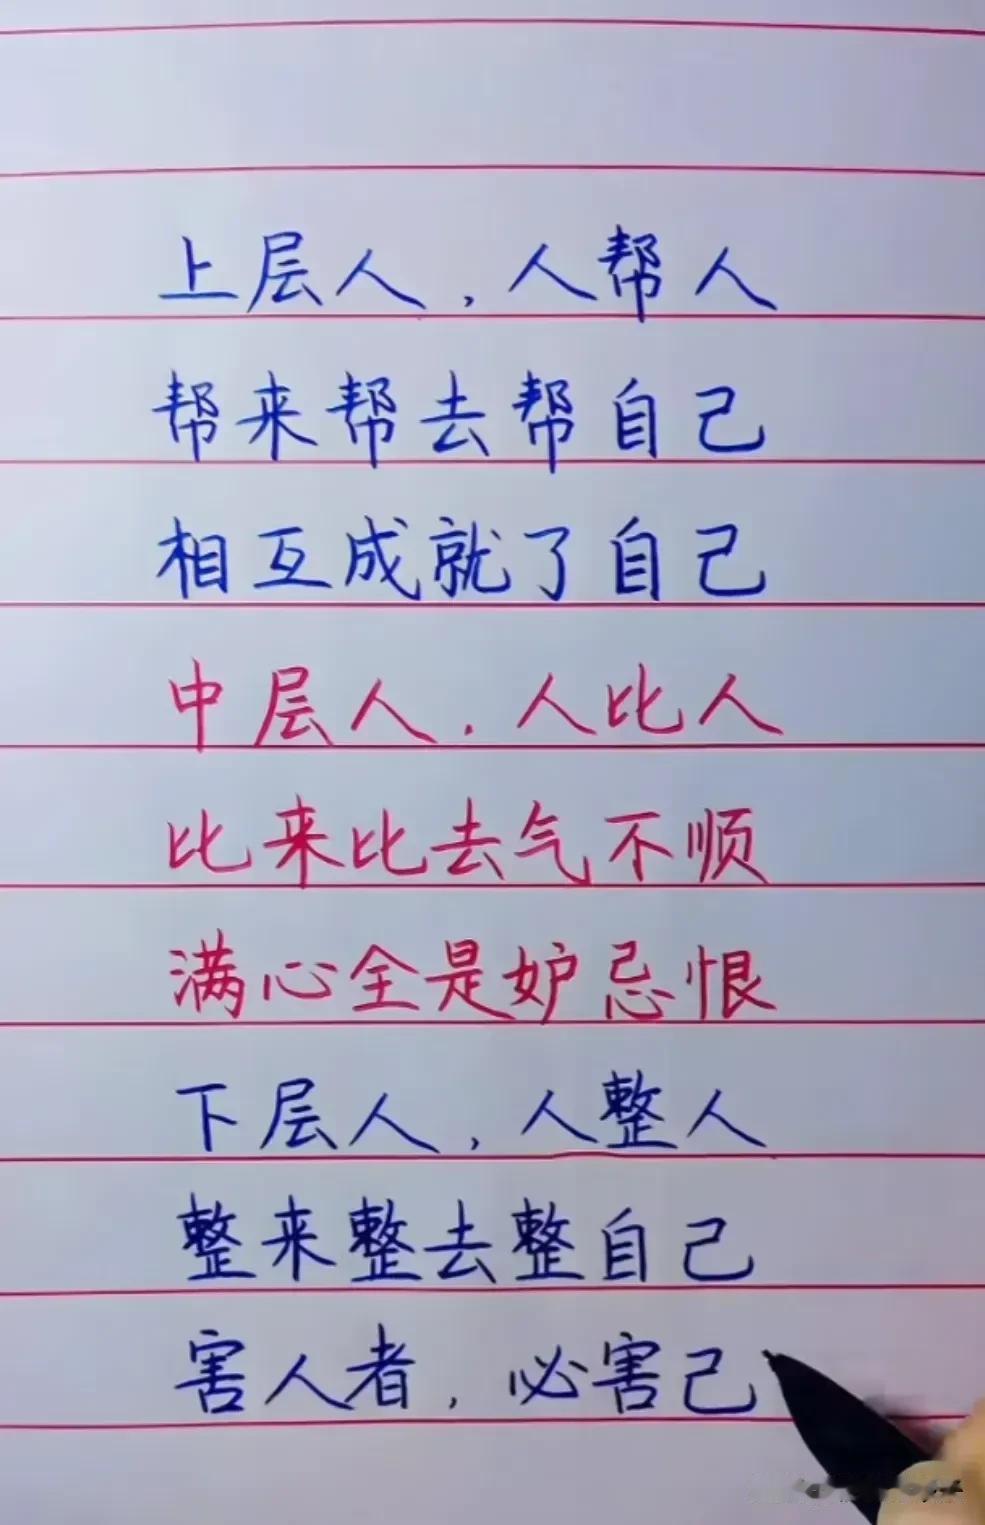 上层人，人帮人
帮来帮去帮自己
相互成就了自己
中层人．人比人
比来比去气不顺
满心全是妒忌恨
下层人，人整人
整来整去整自己
害人者，必害己